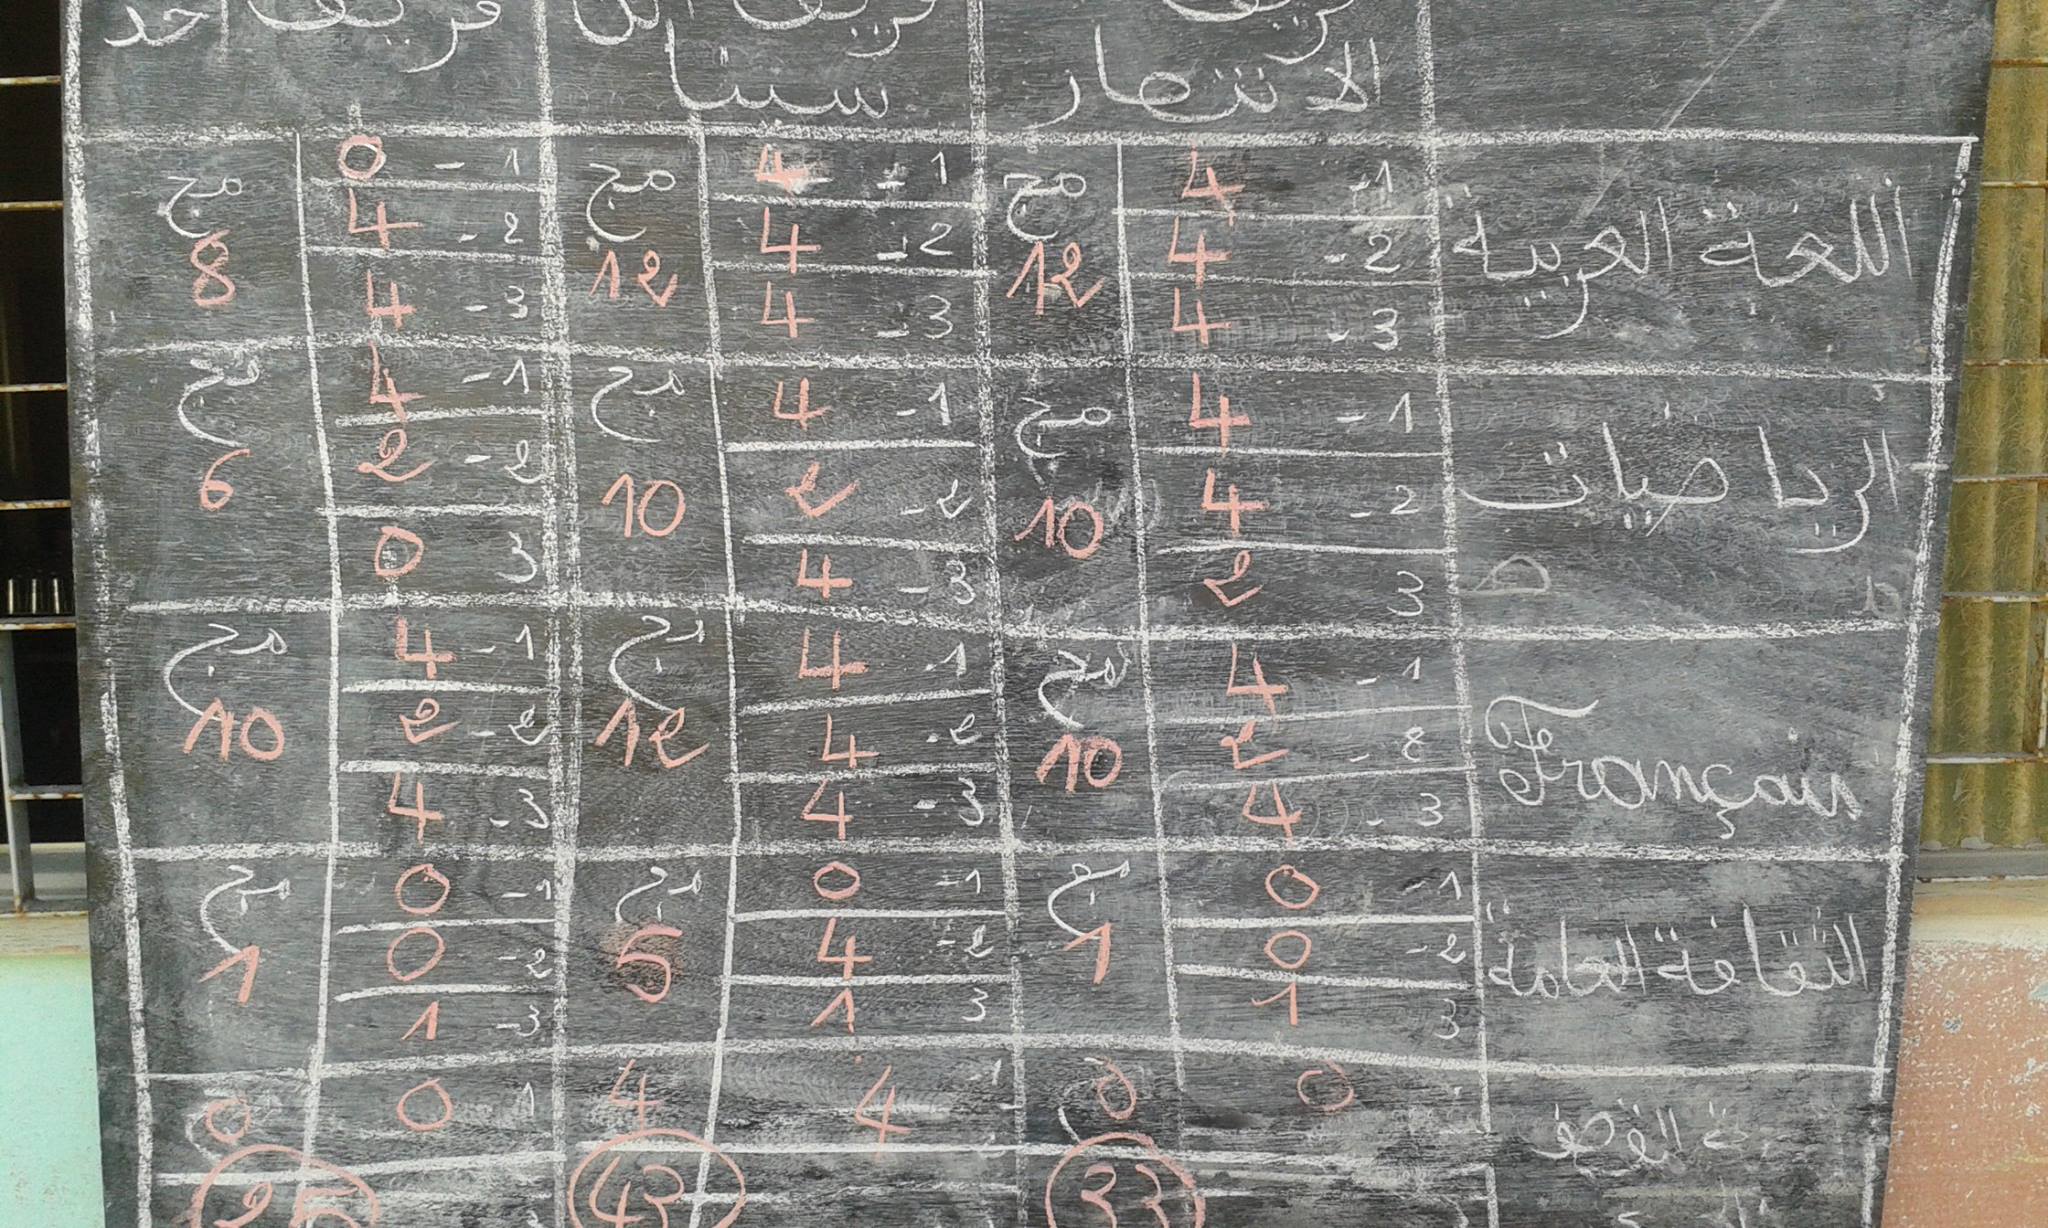 فريق فريق ابن فريق أحد
الانتصار سينا
اللغة العربية
1- 4 مج 12 1- 4 مج 12 1- 0 مج 8
2- 4 2- 4 2- 4
3- 4 3- 4 3- 4
الرياضيات
1- 4 مج 10 1- 4 مج 10 1- 4 مج 6
2- 4 2- 2 2- 2
3 2 3- 4 3 0
Français
1- 4 مج 10 1- 4 مج 12 1- 4 مج 10
2- 2 2- 4 2- 2
3- 4 3- 4 3- 4
الثقافة العامة
1- 0 مج 1 1- 0 مج 5 1- 0 مج 1
2- 0 2- 4 2- 0
3 1 3 1 3- 1
0 0 1- 4 4 1 0 0
33 43 25